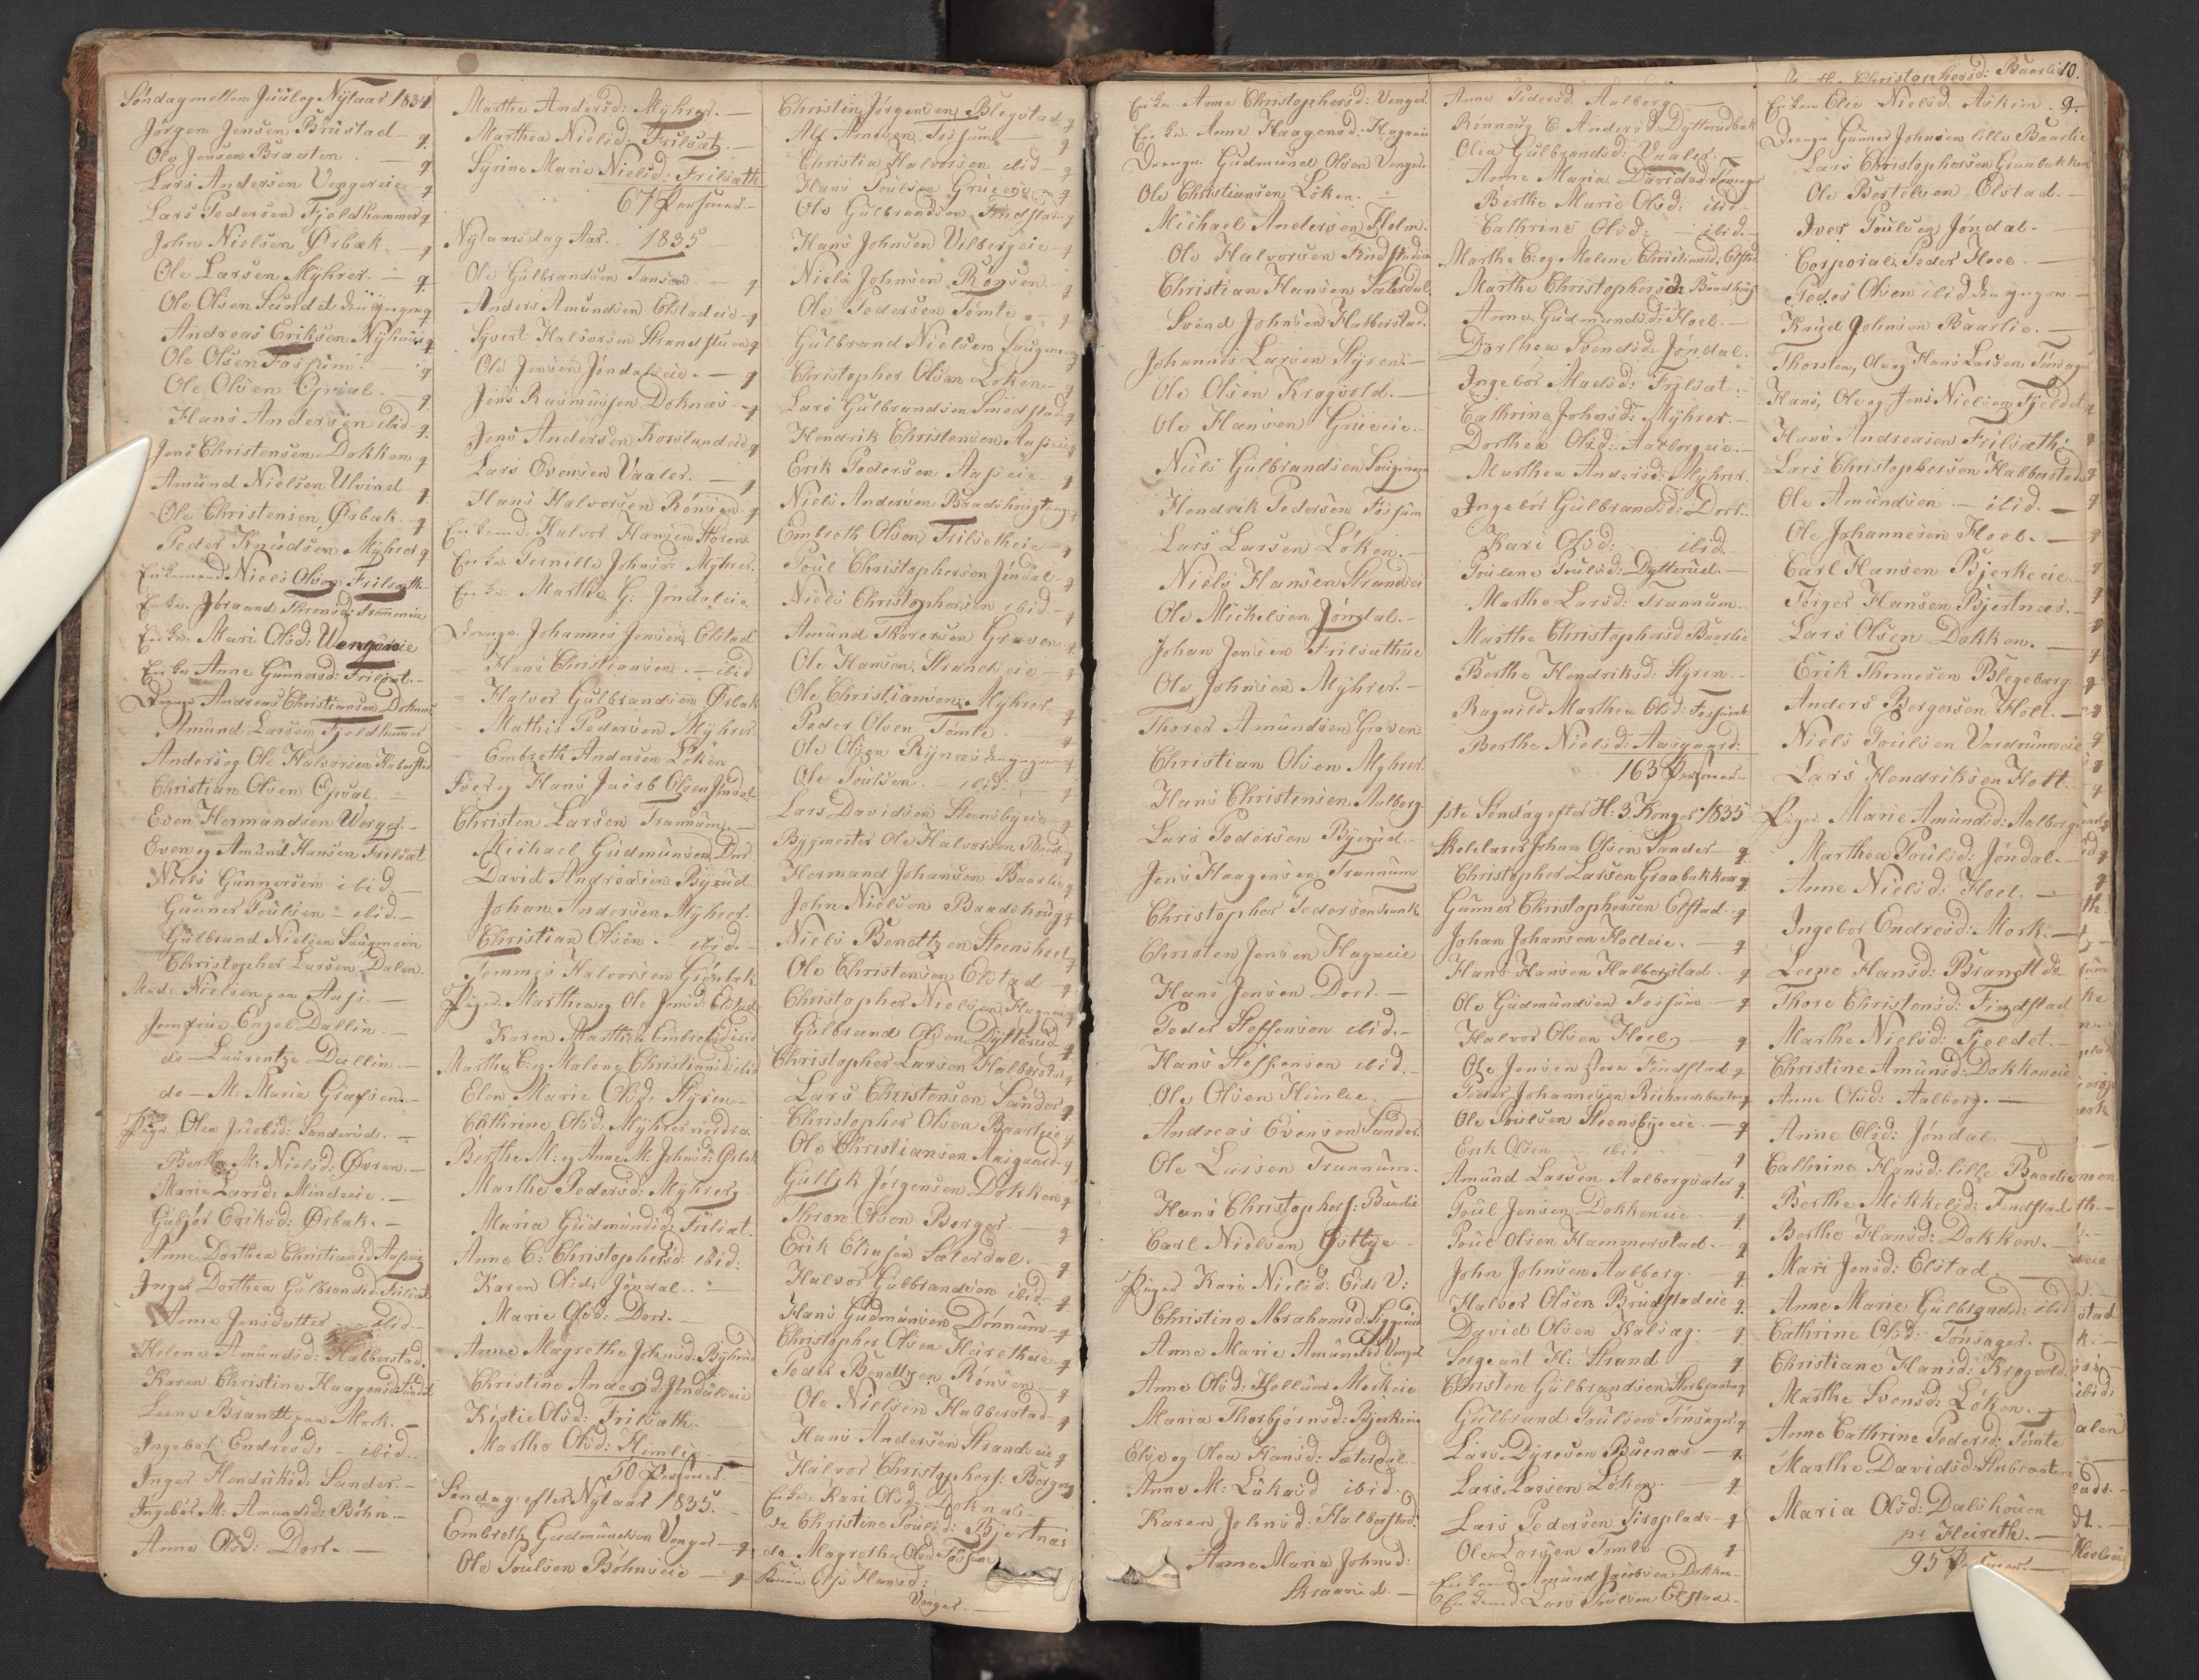 Søndag mellem Juul og Nytaar 1834
Jørgen Jensen Brustad - g
Ole Jensen Braaten - g
Lars Andersen Vengereie - g
Lars Pedersen Fjeldhammer g
John Nielsen Ørbæk - g
Ole Larsen Myhrer - g
Ole Olsen Sundet den yngre g
Andreas Eriksen Nyhuus g
Ole Olsen Fossum - g
Ole Olsen - g
Hans Andersen ibid g
Jens Christensen Dokken g
Amund Nielsen Ulvind g
Ole Christensen Ørbæk g
Peder Knudsen Myhrer g
Enkemand Niels Olsen Frilsæth
Enke
Enke Mari Olsd: Wengereie
Enke Anne Gunnersd: Frilsæt -
Drenge Andreas Christiansen Doknæs
Amund Larsen Fjeldhammer
Anders og Ole Halvorsen
Christian Olsen
Even Hermandsen Wenger -
Even og Amund Hansen Frilsæt
Niels Gunnersen ibid -
Gunner Poulsen - ibid -
Gulbrand Nielsen Saugmoen
Christopher Larsen Dalen
Mad: Nielsen paa Aas -
Jomfrue Engel Dallin -
do - Laurentze Dallin -
do - M: Maria
Piger Olea Jacobsd: Sanderud -
Berthe M: Nielsd: Øvren -
Marie Larsd: Mindeeie -
Gubjør Eriksd: Ørbæk -
Anne Dorthea Christiansd
Inger Dorthea Gulbrandsd: Frilsæt
Anne Jensdatter - ibid -
Helene Amundsd: Halberstad
Karen Christine Haagensd
Leene Brandt paa Mork -
Ingebor Endresd: - ibid
Inger Hendriksd: Sander -
Ingebor M: Amundsd: Bøhn -
Anne Olsd: Dorr -
Marthe Andersd: Myhrer -
Marthea Nielsd. Frilsæt -
Syrine Marie Nielsd: Frilsæth
67 Personer -
Nytaarsdag Aar. 1835
Ole Gulbrandsen - g
Anders Amundsen Elstadeie - g
Syvert Halvorsen Strandstuen g
Ole Jensen Jøndaleie - g
Jens Rasmussen Doknæs - g
Jens Andersen g
Lars Evensen Vaaler - g
Hans Halvorsen Rønsen g
Enkemd Halvor Hansen
Enke Pernille Johnsd: Myhrer
Enke Marthe G: Jøndaleie
Drenge Johannes Jensen Elstad
Hans Christiansen - ibid
Halvor Gulbrandsen Ørbæk
Mathis Pedersen Myhrer
Embreth Andersen Løken
Iver og Hans Jacob Olsen Jøndal
Christen Larsen Trannum
Michael Gudmunsen Dor
David Andreasen Byrud
Johan Andersen Myhrer
Christian Olsen - ibid -
Tommes Halvorsen
Piger Marthea og Ole Jensd: Elstad
Karen Marthea Embretsd ibid
Marthe E: og Malene Christiansd: ibid
Elen Marie Olsd: Styren -
Cathrine Olsd: Myhrer nordre
Berthe M: og Anne M: Johnsd: Ørbæk
Marthe Pedersd: Myhrer
Maria Gudmundsd: Frilsæt
Anne C: Christophersd: ibid:
Karen Olsd: Jøndal
Marie Olsd: Dorr -
Anne Magrethe Johnsd: Byhrud
Christine Andersd: Jøndaleie
Kirstie Olsd: Frilsæth -
Marthe Olsd: Himlie
50 Personer
Søndag efter Nytaar 1835
Embreth Gudmundsen Venger - g
Ole Poulsen Bøhnseie - g
Christin Jørgensen Blegstad g
Alf Arnesen Fossum - g
Christian Halvorsen ibid - g
Hans Poulsen g
Ole Gulbrandsen Findstad g
Hans Johnsen Vilbergeie - g
Niels Johnsen Rønsen - g
Ole Pedersen Tomte - g
Gulbrand Nielsen Saugmoen g
Christopher Olsen Løken - g
Lars Gulbrandsen Smedstad g
Hendrik Christensen Aaseie g
Erik Pedersen Aaseie - g
Niels Andersen Baadshougteng g
Embreth Olsen Frilsetheie - g
Poul Christophersen Jøndal - g
Niels Christophersen ibid - g
Amund Thorersen Graven g
Ole Hansen Strandeie - g
Ole Christiansen Myhrer g
Peder Olsen Tomte g
Ole Olsen Rynæs den yngre g
Ole Poulsen - ibid - g
Lars Davidsen Steensbyeie g
Bygmester Ole Halvorsen g
Hermand Johansen Baarlie g
John Nielsen Baadshoug g
Niels Benettzen Steenshoel g
Ole Christensen Elstad g
Christopher Nielsen g
Gulbrand Olsen Dytterud g
Christopher Larsen Halberstad g
Lars Christensen Sander g
Christopher Olsen Baarlieie g
Ole Christiansen Aasgaard g
Gullik Jørgensen Dokken g
Thron Olsen Berger g
Erik Eliasen Sæterdal g
Halvor Gulbrandsen ibid g
Hans Gudmunsen Dønnum g
Christopher Olsen Heiretheie g
Peder Benettzen Rønsen g
Ole Nielsen Habberstad g
Hans Andersen Strandeie g
Halvor Christophers: Berger g
Enke: Kari Olsd: Doknæs
do Christine Poulsd: Bjertnæs
do Magrethe Olsd: Fossum
Else Hansd:
Venger -
Enke Anne Christophersd: Venger
Enke Anne Haagensd: Hagaeie
Drenge Gudmund Olsen Venger
Ole Christiansen Løken
Michael Andersen Holm
Ole Halvorsen Findstadeie
Christian Hansen Sæterdal
Svend Johnsen Habberstad
Johannes Larsen Styren -
Ole Olsen Krogvold -
Ole Hansen Grueeie -
Niels Gulbrandsen Saugmoen
Hendrik Pedersen Fossum
Lars Larsen Løken -
Niels Hansen Strandeie
Ole Mickelsen Jøndal -
Johan Jensen Frilsætheie
Ole Johnsen Myhrer -
Thorer Amundsen Graven
Christian Olsen Myhrer
Hans Christensen Aalborg
Lars Pedersen Byerud -
Jens Haagensen Trannum
Christopher Pedersen
Christen Jensen Hagaeie
Hans Jensen Dorr -
Peder Steffensen ibid -
Hans Steffensen ibid -
Ole Olsen Himlee -
Andreas Evensen Sander
Ole Larsen Trannum -
Hans Christophers: Baarlie
Carl Nielsen
Piger Kari Nielsd: Eids V:
Christine Abrahamsd:
Anne Marie Amundsd Venger
Anne Olsd: Hollum Morkeie
Maria Thorbjørnsd: Bjerkeeie
Elise og Olea Hansd: Sæterdal -
Anne M: Lukasd ibid -
Karen Johnsd: Halberstad
Anne Maria Johnsd:
Skraarud -
Anne Pedersd. Aalborg
Rønnoug E. Andersd: Dytterudbak
Olea Gulbrandsd: Vaaler
Anne Maria Davidsd Tønsager
Berthe Marie Olsd: ibid -
Cathrine Olsd: - ibid -
Marthe E: og Malene Christiansd: Elstad
Marthe Christophersd: Baadshoug
Anne Gudmundsd: Hoel -
Dorthea Svendsd: Jøndal
Ingebor Madsd: Frilsæt -
Cathrine Johnsd: Myhrer -
Dorthea Olsd: Aalborgeie -
Marthea Andersd: Myhrer
Ingebor Gulbrandsd: Dorr -
Kari Olsd: ibid
Poulene Poulsd: Dytterud -
Marthe Larsd: Trannum -
Marthe Christophersd Baarlie
Berthe Hendriksd: Styren -
Ragnild Marthea Olsd: Fossum
Berthe Nielsd: Aasgaard
163 Personer -
1ste Søndag efter H: 3 Konger 1835
Skolelærer Johan Olsen Sander - g
Christopher Larsen Graabækken g
Gunner Christophersen Elstad - g
Johan Johansen Holteie - g
Hans Hansen Halberstad - g
Ole Gudmundsen Fossum - g
Halvor Olsen Hoel - g
Ole Jensen store Findstad g
Peder Johannesen Richardsbraaten g
Ole Poulsen Steensbyeie - g
Erik Olsen - ibid - g
Amund Larsen Aalborgsæter g
Poul Jensen Dokkeneie - g
Poul Olsen Hammerstad - g
John Johnsen Aalborg - g
Halvor Olsen Brudstadeie g
David Olsen Kalsag - g
Sergeant H: Strand g
Christen Gulbrandsen g
Gulbrand Poulsen Tønsager g
Lars Dyresen Buenæs - g
Lars Larsen Løken - g
Lars Pedersen - g
Ole Larsen Tomte g
Enkemd Amund Jacobsen Dokken -
Enkemd Lars Poulsen Elstad -
Marthe Christophersd: Baarlie 10.
Enken Elie Nielsd. Askim - 9.
Drenge Gunner Johnsen lille Baarlie
Lars Christophersen Graabækken
Ole Bertelsen Elstad -
Iver Poulsen Jøndal -
Corporal Peder Hoel -
Peder Olsen ibid den yngre -
Knud Johnsen Baarlie -
Thorsten, Ole og Hans Larsen Tønsager
Hans, Ole og Jens Nielsen Fjeldet
Hans Andreasen Frilsæth
Lars Christophersen Halberstad
Ole Amundsen - ibid -
Ole Johannesen Hoel -
Carl Hansen Bjerkeeie -
Torger Hansen Bjertnæs -
Lars Olsen Dokken -
Erik Thomesen Blegeberg
Anders Borgersen Hoel -
Niels Poulsen
Lars Hendriksen Holt
Piger Marie Amundsd: Aalborg
Marthea Poulsd: Jøndal -
Anne Nielsd: Hoel -
Ingebor Endresd: Mork -
Leene Hansd: Brandt do
Thore Christensd: Findstad
Marthe Nielsd: Fjeldet -
Christine Amundsd: Dokkeneie
Anne Olsd: Aalborg -
Anne Olsd: Jøndal -
Cathrine Hansd: lille Baarlie
Berthe Mikkelsd: Findstad
Berthe Hansd: Dokken -
Mari Jensd: Elstad
Anne Marie Gulbrandsd: ibid
Cathrine Olsd: Tønsager -
Christiane Hansd: Krogvold
Marthe Svensd: Løken -
Anne Cathrine Pedersd: Tomte
Marthe Davidsd:
Maria Olsd: Dalshouen
pr Heireth -
95 Personer -